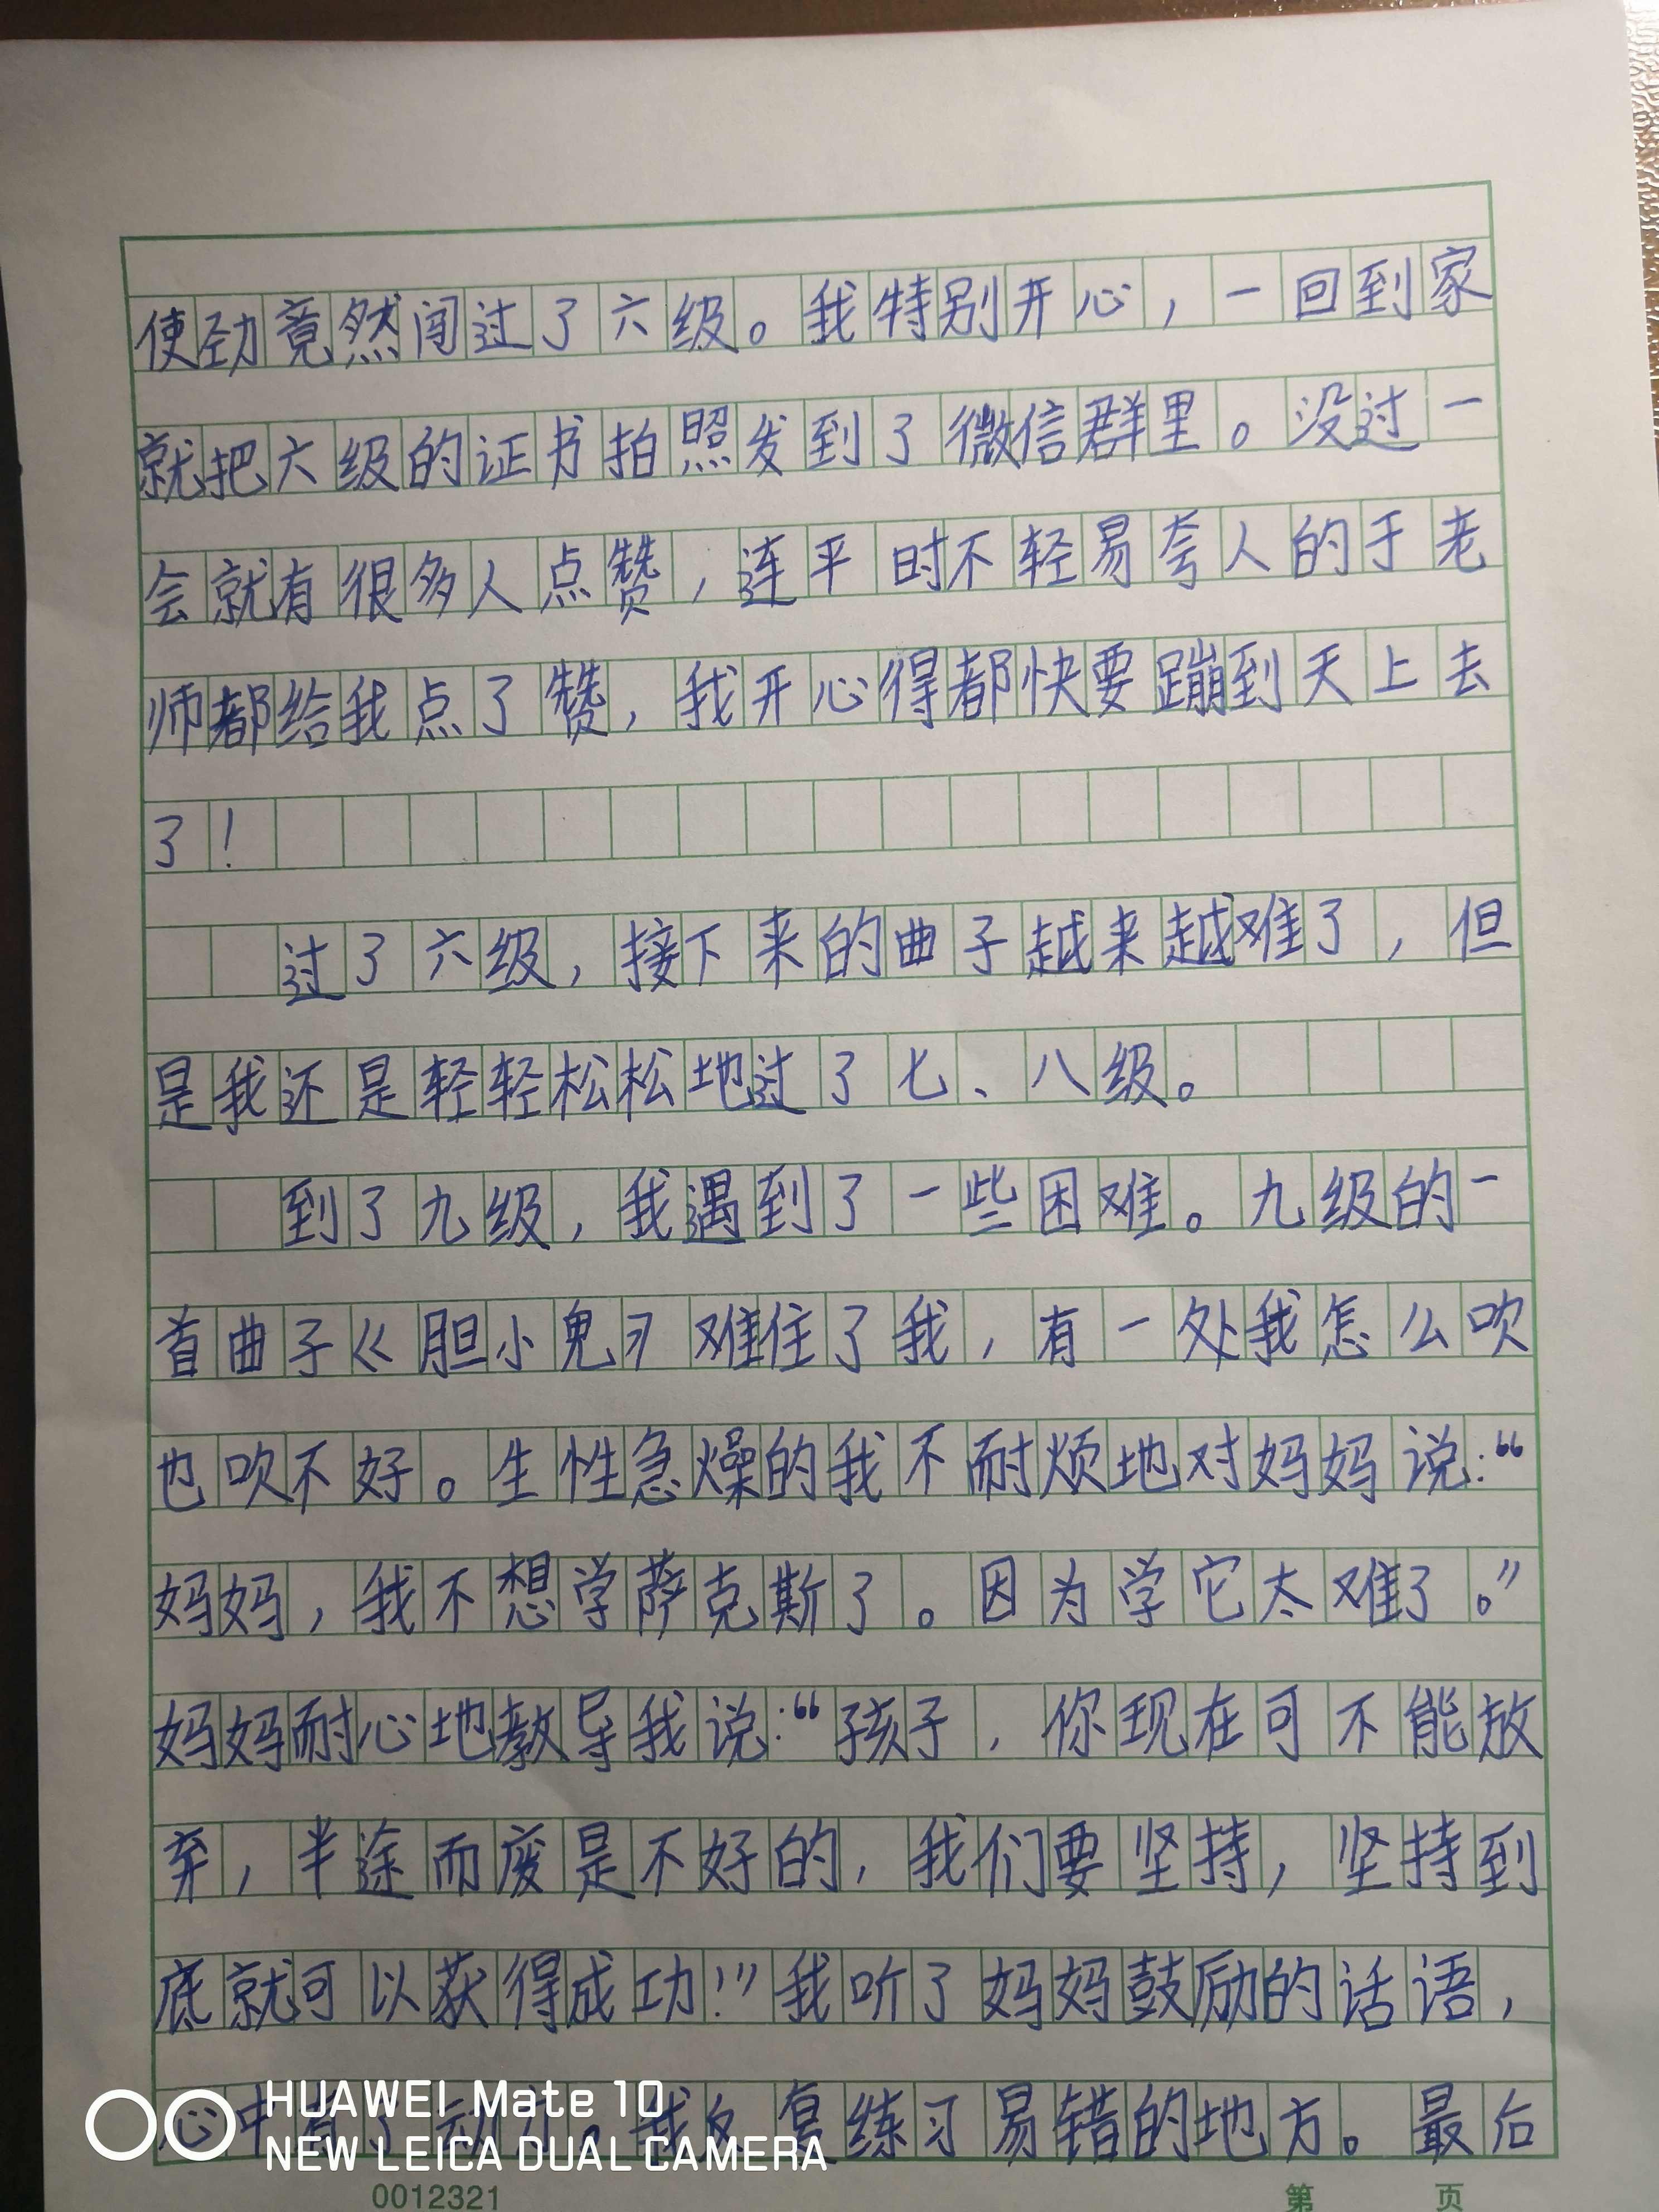 使劲竟然闯过了六级。我特别开心，一回到家
就把六级的证书拍照发到了微信群里。没过一
会就有很多人点赞，连平时不轻易夸人的于老
师都给我点了赞，我开心得都快要蹦到天上去
了！
过了六级，接下来的曲子越来越难了，但
是我还是轻轻松松地过了七、八级。
到了九级，我遇到了一些困难。九级的一
首曲子《胆小鬼》难住了我，有一处我怎么吹
也吹不好。生性急燥的我不耐烦地对妈妈说：“
妈妈，我不想学萨克斯了。因为学它太难了。”
妈妈耐心地教导我说：“孩子，你现在可不能放
弃，半途而废是不好的，我们要坚持，坚持到
底就可以获得成功！”我听了妈妈鼓励的话语，
心中有了动力。我反复练习易错的地方。最后
HUAWEI Mate 10
NEW LEICA DUAL CAMERA
0012321 第 页